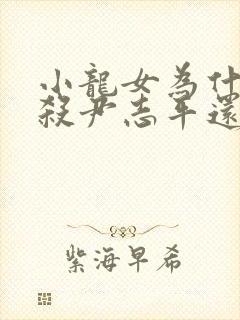 小龍女為什
殺尹志平還
紫海早希